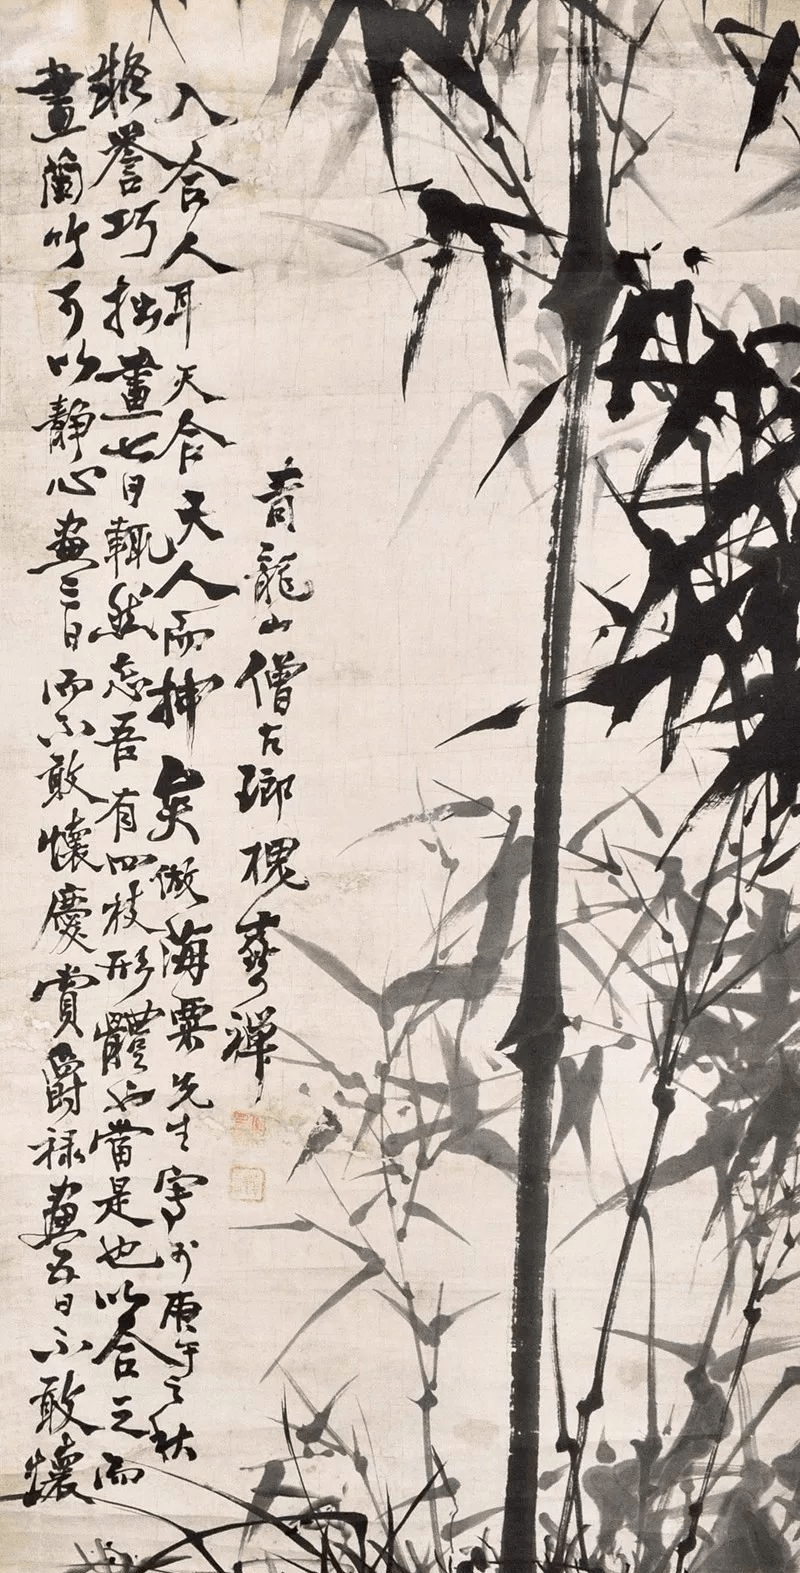 畫蘭竹可以靜心畫三日而不敢懷慶賞爵祿畫五日不敢懷
譽巧拙畫七日輒然忘吾有四枝形體也當是也以合之而
入合人耳天合天人而神矣倣海粟先生寫於庚午之秋
青龍山僧瑯槐禪